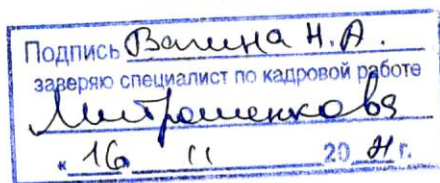 Подпись Валина Н.А.
заверяю специалист по кадровой работе
Митрошенкова
« 16 11 20 21 г.